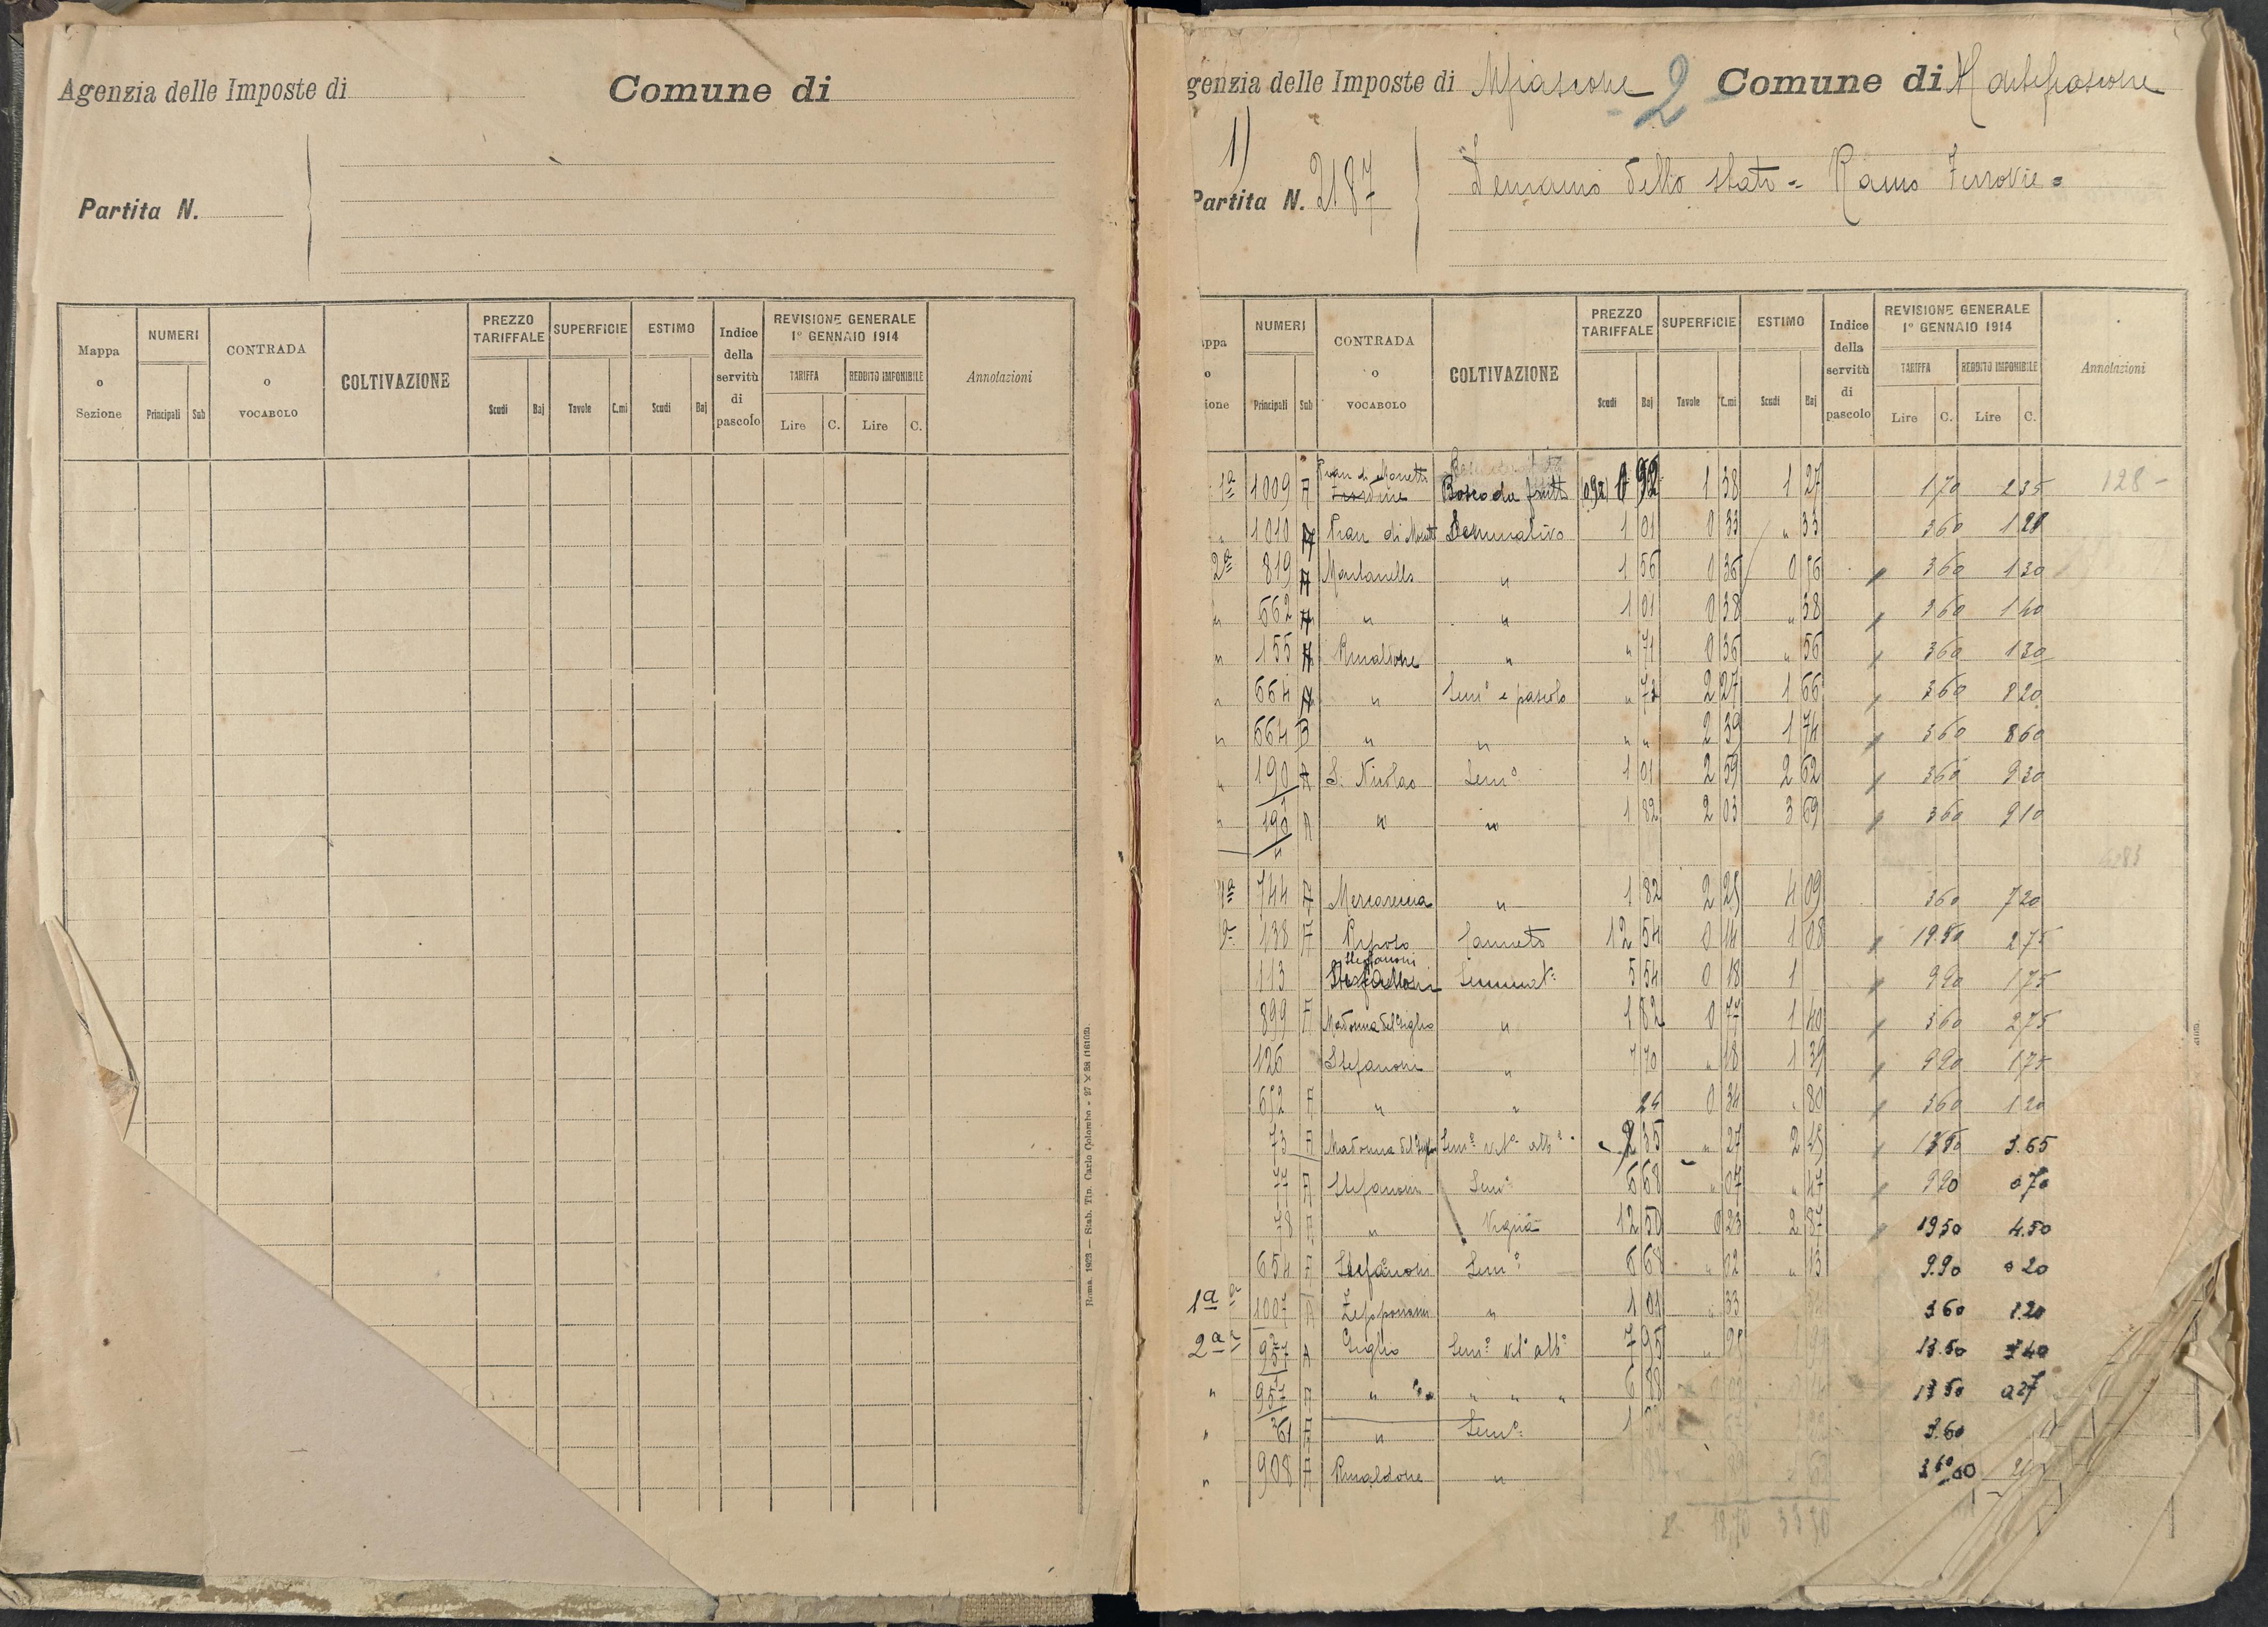 Agenzia delle Imposte di
Comune di
Partita N.
Mappa o Sezione
NUMERI
Principali Sub
CONTRADA o VOCABOLO
COLTIVAZIONE
PREZZO TARIFFALE
Scudi Baj
SUPERFICIE
Tavole C.mi
ESTIMO
Scudi Baj
Indice della servitù di pascolo
REVISIONE GENERALE
1° GENNAIO 1914
TARIFFA REDDITO IMPONIBILE
Lire C. Lire C.
Annotazioni
Roma. 1923 — Stab. Tip. Carlo Colombo
genzia delle Imposte di Mfiascone 2 Comune di Montefiascone
1)
Partita N. 2187
Demanio dello stato = Ramo Ferrovie =
ppa o ione
NUMERI
Principali Sub
CONTRADA o VOCABOLO
COLTIVAZIONE
PREZZO TARIFFALE
Scudi Baj
SUPERFICIE
Tavole C.mi
ESTIMO
Scudi Baj
Indice della servitù di pascolo
REVISIONE GENERALE
1° GENNAIO 1914
TARIFFA REDDITO IMPONIBILE
Lire C. Lire C.
Annotazioni
1ª 1009 A Bosco da frutto 0 92 1 38 1 27 1 70 2 35 128 -
" 1010 A Pian di Seminativo 1 01 0 33 " 33 3 60 1 20
2ª 819 A Montanello " 1 56 0 36 0 56 3 60 1 30
" 662 A " " 1 01 0 38 " 38 3 60 1 40
" 155 A Rinaldone " " 71 0 36 " 56 3 60 1 30
" 664 A " Semº e pascolo " 73 2 27 1 66 3 60 8 20
" 664 B " " " " 2 39 1 74 3 60 8 60
" 190 A S. Nicolao Semº 1 01 2 59 2 62 3 60 9 30
" A " " 1 82 2 03 3 69 3 60 9 10
1ª 744 A " 1 82 2 25 4 09 3 60 7 20
2ª 138 A Canneto 12 54 0 14 1 08 19.50 2 75
Stefanoni
113 Seminatº 5 54 0 18 1 9 90 1 75
899 A Madonna del Giglio " 1 82 0 77 1 40 3 60 2 75
126 Stefanoni " 7 70 " 18 1 39 9 90 1 75
672 A " " 0 34 " 80 3 60 1 20
73 A Madonna del Giglio Semº vitº albº 35 " 27 2 45 13 50 3.65
77 A Stefanoni Semº 6 68 " 07 " 47 9 90 0 70
78 A " Vigna 12 50 0 23 2 87 19 50 4.50
654 A Stefanoni Semº 6 68 " 02 " 13 9.90 0 20
1ª 1007 A Zepponami " 1 01 " 33 3 60 1.20
2ª A Giglio Semº vitº albº 7 95 13.50
" A " " " " 6 88 13 50 0 27
" 61 A " Semº 3.60
" 908 A Rinaldone "